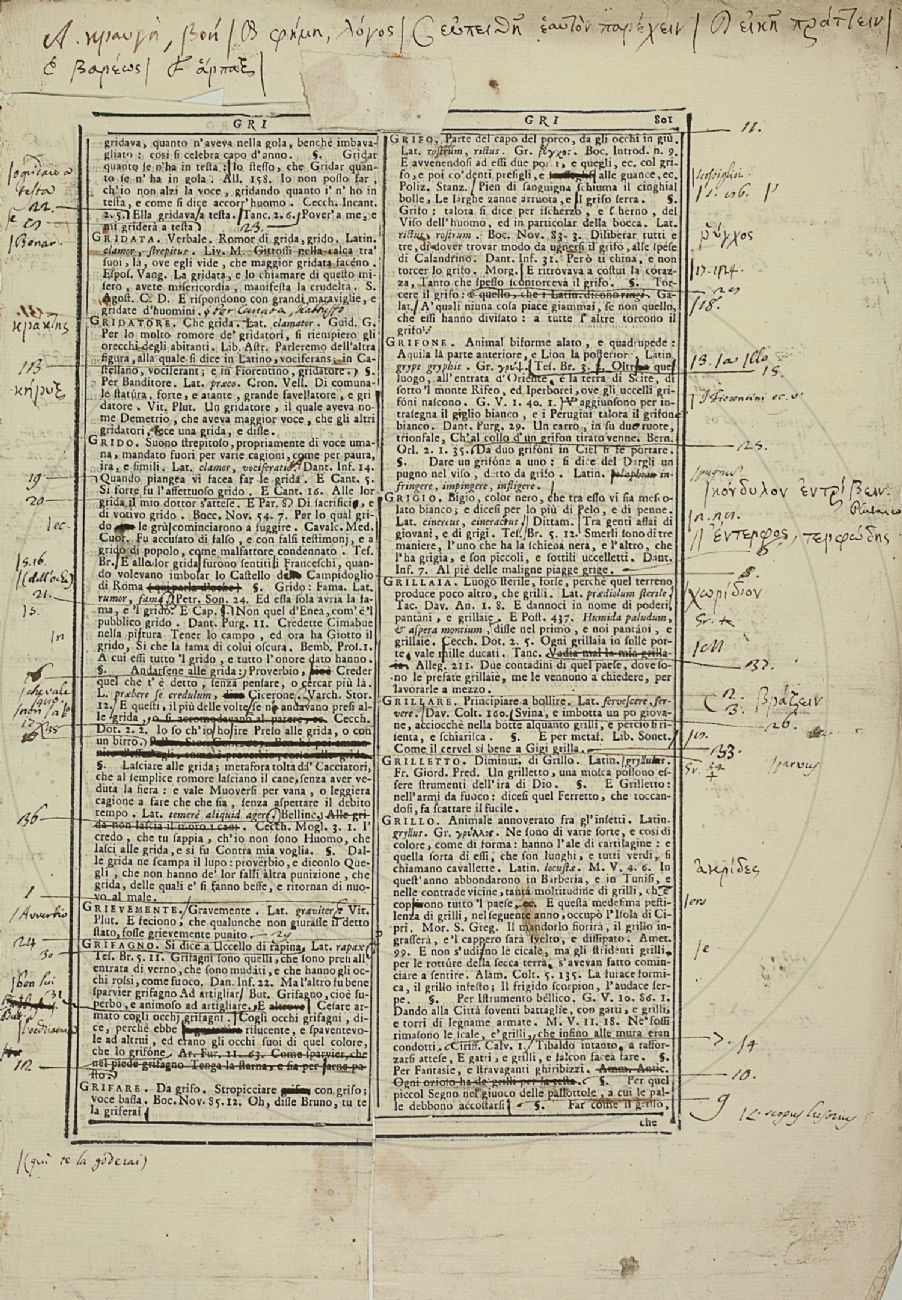 A. κραυγὴ, βοή | B φήμη, λόγος | C εὐπειθῆ ἑαυτὸν παρέχειν | D εἰκῆ πράττειν |
E βαρέως | F ἅρπαξ |
GRI
gridava, quanto n'aveva nella gola, benchè imbava-
gliato: così si celebra capo d'anno. §. Gridar
quanto se n'ha in testa: lo stesso, che Gridar quan-
to se n'ha in gola. All. 158. Io non posso far,
ch'io non alzi la voce, gridando quanto i' n' ho in
testa, e come si dice accorr'huomo. Cecch. Incant.
2. 5. Ella gridava a testa. Tanc. 2. 6. Pover'a me, e
mi griderà a testa
GRIDATA. Verbale. Romor di grida, grido, Latin.
clamor, strepitus. Liv. M. Gittossi nella calca tra'
suoi, là, ove egli vide, che maggior gridata faceno.
Espos. Vang. La gridata, e lo chiamare di questo mi-
sero, avete misericordia, manifesta la crudeltà. S.
Agost. C. D. E rispondono con grandi maraviglie, e
gridate d'huomini.
GRIDATORE. Che grida. Lat. clamator. Guid. G.
Per lo molto romore de' gridatori, si riempiero gli
orecchi degli abitanti. Lib. Astr. Parleremo dell'altra
figura, alla quale si dice in Latino, vociferans; in Ca-
stellano, vociferant; e in Fiorentino, gridatore. §.
Per Banditore. Lat. præco. Cron. Vell. Di comuna-
le statura, forte, e atante, grande favellatore, e gri
datore. Vit. Plut. Un gridatore, il quale aveva no-
me Demetrio, che aveva maggior voce, che gli altri
gridatori, fece una grida, e disse.
GRIDO. Suono strepitoso, propriamente di voce uma-
na, mandato fuori per varie cagioni, come per paura,
ira, e simili. Lat. clamor, vociferatio. Dant. Inf. 14.
Quando piangea vi facea far le grida. E Cant. 5.
Sì forte fu l'affettuoso grido. E Cant. 16. Alle lor
grida il mio dottor s'attese. E Par. 8. Dì sacrifici, e
di votivo grido. Bocc. Nov. 54. 7. Per lo qual gri-
do le grù cominciarono a fuggire. Cavalc. Med.
Cuor. Fu accusato di falso, e con falsi testimonj, e a
grido di popolo, come malfattore condennato. Tes.
Br. E allo lor grida furono sentiti i Franceschi, quan-
do volevano imbolar lo Castello Campidoglio
di Roma §. Grido: Fama. Lat.
rumor, fama. Petr. Son. 24. Ed essa sola avria la fa-
ma, e 'l grido. E Cap. §. Non quel d'Enea, com'è'l
pubblico grido. Dant. Purg. 11. Credette Cimabue
nella pittura Tener lo campo, ed ora ha Giotto il
grido, Sì che la fama di colui oscura. Bemb. Pros. 1.
A cui essi tutto 'l grido, e tutto l'onore dato hanno.
§. Andarsene alle grida: Proverbio, Creder
quel che t'è detto, senza pensare, o cercar più là.
L. præbere se credulum, Cicerone. Varch. Stor.
12. E questi, il più delle volte, se ne andavano presi al-
le grida, o si accomodavano al parere, ec. Cecch.
Dot. 2. 2. Io so ch'io ho ire Preso alle grida, o con
un birro.
§. Lasciare alle grida; metafora tolta da' Cacciatori,
che al semplice romore lasciano il cane, senza aver ve-
duta la fiera: e vale Muoversi per vana, o leggiera
cagione a fare che che sia, senza aspettare il debito
tempo. Lat. temerè aliquid agere. Bellinc. Alle gri-
da non lascia il moro i cani. Cecch. Mogl. 3. 1. I'
credo, che tu sappia, ch'io non sono Huomo, che
lasci alle grida, e si fu Contra mia voglia. §. Dal-
le grida ne scampa il lupo: proverbio, e diconlo Que-
gli, che non hanno de' lor falli altra punizione, che
grida, delle quali e' si fanno beffe, e ritornan di nuo-
vo al male.
GRIEVEMENTE. Gravemente. Lat. graviter. Vit.
Plut. E feciono, che qualunche non giurasse il detto
stato, fosse grievemente punito.
GRIFAGNO. Si dice a Uccello di rapina, Lat. rapax
Tes. Br. 5. 11. Grifagni sono quelli, che sono presi all'
entrata di verno, che sono mudati, e che hanno gli oc-
chi rossi, come fuoco. Dan. Inf. 22. Ma l'altro fu bene
sparvier grifagno Ad artigliar. But. Grifagno, cioè su-
perbo, e animoso ad artigliare. E altrove: Cesare ar-
mato cogli occhj grifagni. Cogli occhi grifagni, di-
ce, perchè ebbe rilucente, e spaventevo-
le ad altrui, ed erano gli occhi suoi di quel colore,
che lo grifone. Ar. Fur. 21. 63. Come sparvier, che
nel piede grifagno Tenga la starna, e sia per farne pa-
sto.
GRIFARE. Da grifo. Stropicciare con grifo;
voce bassa. Boc. Nov. 85. 12. Oh, disse Bruno, tu te
la griferai
GRI 801
GRIFO. Parte del capo del porco, da gli occhi in giù
Lat. rostrum, rictus. Gr. ῥύγχος. Boc. Introd. n. 9.
E avvenendosi ad essi due porci, e quegli, ec. col gri-
fo, e poi co' denti presigli, e alle guance, ec.
Poliz. Stanz. Pien di sanguigna schiuma il cinghial
bolle, Le larghe zanne arruota, e il grifo serra. §.
Grifo: talora si dice per ischerzo, e scherno, del
Viso dell'huomo, ed in particolar della bocca. Lat.
rictus, rostrum. Boc. Nov. 83. 3. Diliberar tutti e
tre, di dover trovar modo da ugnersi il grifo, alle spese
di Calandrino. Dant. Inf. 31. Però ti china, e non
torcer lo grifo. Morg. E ritrovava a costui la coraz-
za, Tanto che spesso iscontorceva il grifo. §. Tor-
cere il grifo: è quello, che i Latin. dicono ringi. Ga-
lat. A' quali niuna cosa piace giammai, se non quello,
che essi hanno divisato: a tutte l'altre torcono il
grifo.
GRIFONE. Animal biforme alato, e quadrupede:
Aquila la parte anteriore, e Lion la posterior. Latin.
gryps gryphis. Gr. γρύψ. Tes. Br. 3. Oltre a quel
luogo, all'entrata d'Oriente, e la terra di Scite, di
sotto 'l monte Rifeo, ed Iperborei, ove gli uccelli gri-
foni nascono. G. V. 1. 40. 1. V'aggiunsono per in-
trasegna il giglio bianco, e i Perugini talora il grifone
bianco. Dant. Purg. 29. Un carro, in su due ruote,
trionfale, Ch'al collo d'un grifon tirato venne. Bern.
Orl. 2. 1. 35. Da duo grifoni in Ciel si fe portare.
§. Dare un grifone a uno: si dice del Dargli un
pugno nel viso, detto da grifo. Latin. colaphum in-
fringere, impingere, infligere.
GRIGIO. Bigio, color nero, che tra esso vi sia mescolato
lato bianco; e dicesi per lo più di Pelo, e di penne.
Lat. cinereus, cineraceus. Dittam. Tra genti assai di
giovani, e di grigi. Tes. Br. 5. 12. Smerli sono di tre
maniere, l'uno che ha la schiena nera, e l'altro, che
l'ha grigia, e son piccoli, e sottili uccelletti. Dant.
Inf. 7. Al piè delle maligne piagge grige.
GRILLAIA. Luogo sterile, forse, perchè quel terreno
produce poco altro, che grilli. Lat. prædiolum sterile
Tac. Dav. An. 1. 8. E dannoci in nome di poderi
pantani, e grillaie. E Post. 437. Humida paludum,
& aspera montium, disse nel primo, e noi pantani, e
grillaie. Cecch. Dot. 2. 5. Ogni grillaia in sulle por-
te, vale mille ducati. Tanc. Vadia mal la mia grilla-
ia. Alleg. 211. Due contadini di quel paese, dove so-
no le prefate grillaie, me le vennono a chiedere, per
lavorarle a mezzo.
GRILLARE. Principiare a bollire. Lat. fervescere, fer-
vere. Dav. Colt. 160. Svina, e imbotta un po giova-
ne, acciocchè nella botte alquanto grilli, e perciò fri-
senta, e schiarisca. §. E per metaf. Lib. Sonet.
Come il cervel si bene a Gigi grilla.
GRILLETTO. Diminut. di Grillo. Latin. gryllulus.
Fr. Giord. Pred. Un grilletto, una mosca possono es-
sere strumenti dell'ira di Dio. §. E Grilletto:
nell'armi da fuoco: dicesi quel Ferretto, che toccan-
dosi, fa scattare il fucile.
GRILLO. Animale annoverato fra gl'insetti. Latin.
gryllus. Gr. γρύλλος. Ne sono di varie sorte, e così di
colore, come di forma: hanno l'ale di cartilagine: e
quella sorta di essi, che son lunghi, e tutti verdi, si
chiamano cavallette. Latin. locusta. M. V. 4. 6. In
quest'anno abbondarono in Barberia, e in Tunisi, e
nelle contrade vicine, tanta moltitudine di grilli, che
copirono tutto 'l paese, ec. E questa medesima pesti-
lenza di grilli, nel seguente anno, occupò l'Isola di Ci-
pri. Mor. S. Greg. Il mandorlo fiorirà, il grillo in-
grasserà, e 'l cappero sarà svelto, e dissipato. Amet.
99. E non s'udirno le cicale, ma gli stridenti grilli,
per le rotture della secca terra, s'avevan fatto comin-
ciare a sentire. Alam. Colt. 5. 135. La fuiace formi-
ca, il grillo infesto; Il frigido scorpion, l'audace serpe-
pe. §. Per Istrumento béllico. G. V. 10. 86. 1.
Dando alla Città soventi battaglie, con gatti, e grilli,
e torri di legname armate. M. V. 11. 18. Ne' fossi
rimasono le scale, e'grilli, che insino alle mura eran
condotti. Ciriff. Calv. 1. Tibaldo intanto, a raffor-
zarsi attese, E gatti, e grilli, e falcon facea fare. §.
Per Fantasie, e stravaganti ghiribizzi. Amm. Antic.
Ogni ozioso ha de' grilli per la testa. §. Per quel
piccol Segno nel giuoco delle pallottole, a cui le pal-
le debbono accostarsi §. Far come il grillo,
che
ῥύγχος
κόνδυλον ἐντρίβειν.
χωρίδιον
βράζειν
ἀκρίδες
κῆρυξ
(qui te la goderai)